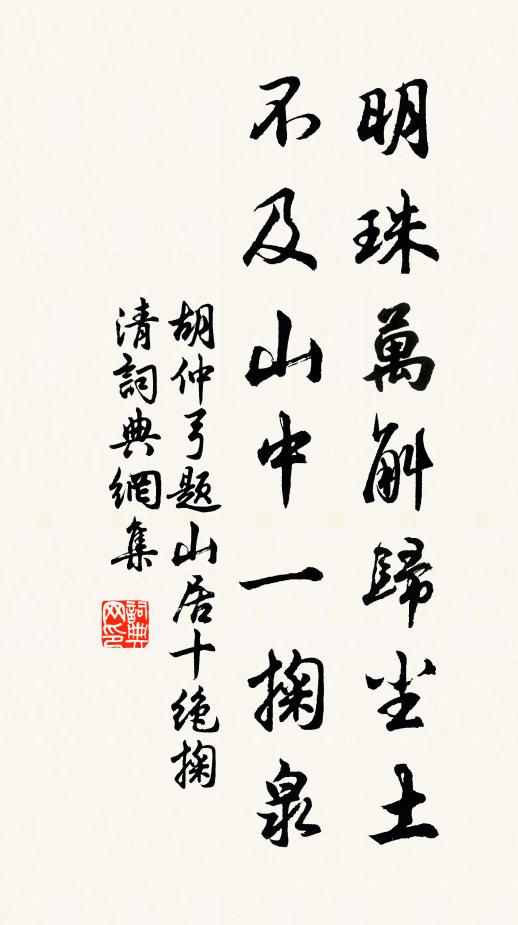 明珠萬斛歸尘土
不及山中一掬泉
胡仲弓题山居十绝掬
清詞典網集
詞典网印